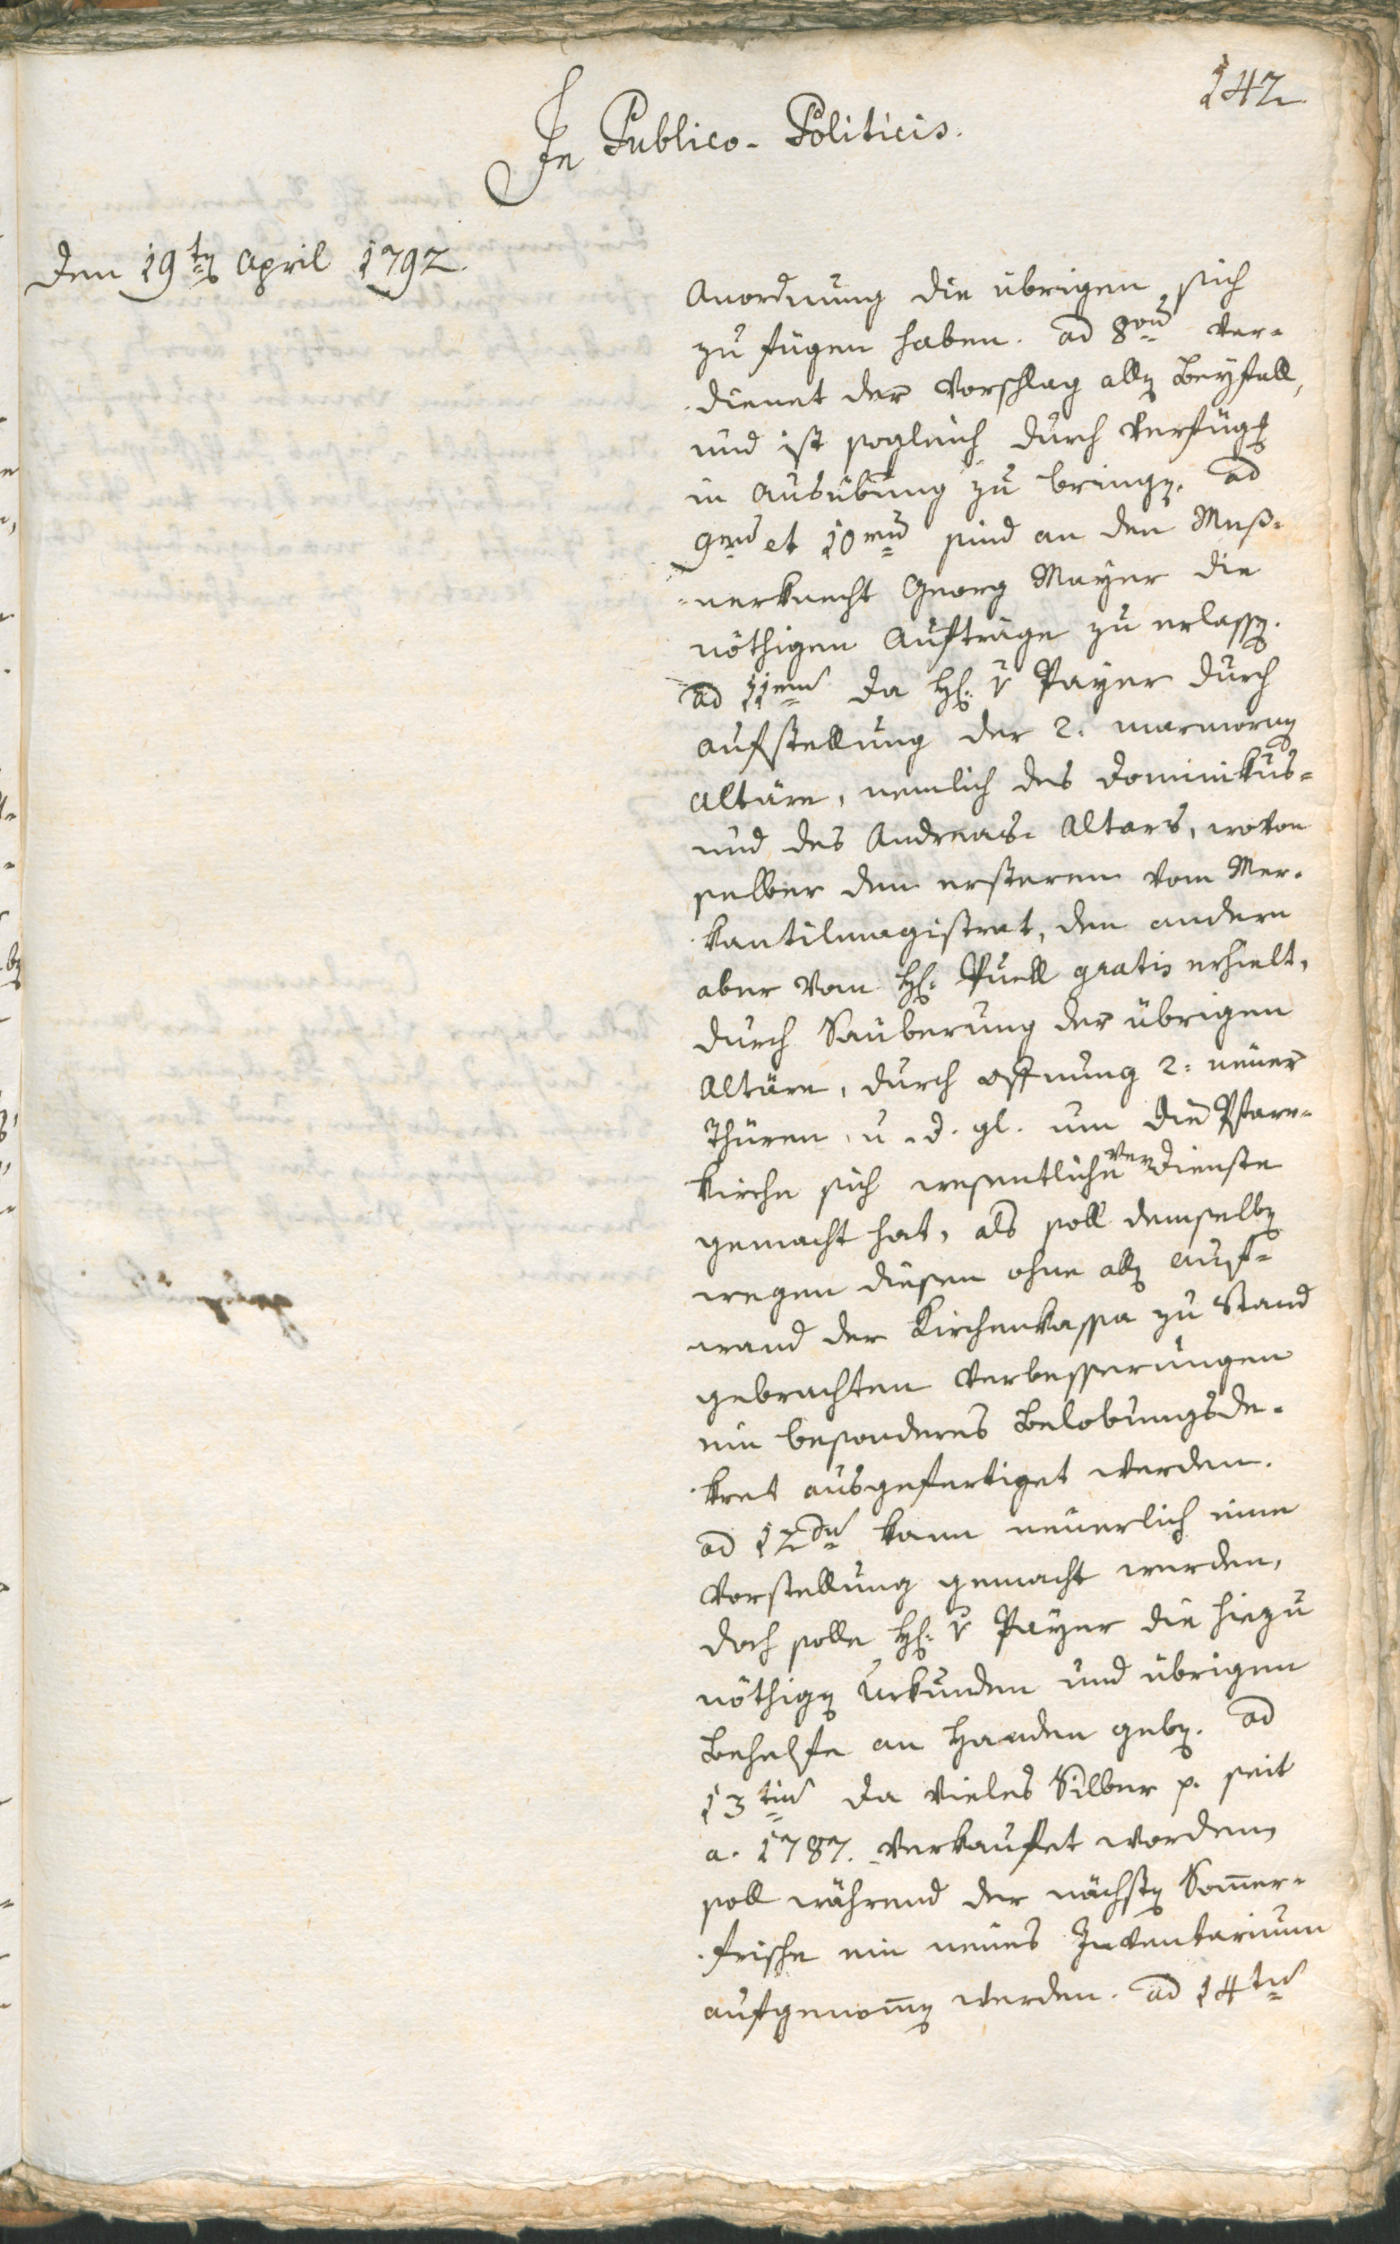 142
In Publico-Politicis.
Den 19ten April 1792.
Anordnung die übrigen sich
zu fügen haben. ad 8vum ver-
dienet der Vorschlag allen Beyfall,
und ist sogleich durch Verfügen
in Ausübung zu bringen. ad
9num et 10mum sind an den Meß-
nerknecht Georg Mayer die
nöthigen Aufträge zu erlassen.
ad 11mum da H: v Payer durch
Aufstellung der 2. marmornen
Altäre, nemlich des Dominikus-
und des Andreas- Altars, wovon
selber den ersteren vom Mer-
kantilmagistrat, den andern
aber vom H: Puell gratis erhielt,
durch Säuberung der übrigen
Altäre, durch Öffnung 2: neuer
Thüren, u. d. gl. um die Pfarr-
kirche sich wesentliche Verdienste
gemacht hat, als soll demselben
wegen diesen ohne allen Auf-
wand der Kirchenkassa zu stand
gebrachten Verbesserungen
ein besonderes Belobungsde-
kret ausgefertiget werden.
ad 12dum kann neuerlich eine
Vorstellung gemacht werden,
doch solle H: v Payer die hiezu
nöthigen Urkunden und übrigen
Behelfe an Handen geben. ad
13tium da vieles Silber p. seit
a. 1787. verkaufet worden,
soll während der nächsten Som̄er-
frische ein neues Inventarium
aufgenom̄en werden. ad 14tum